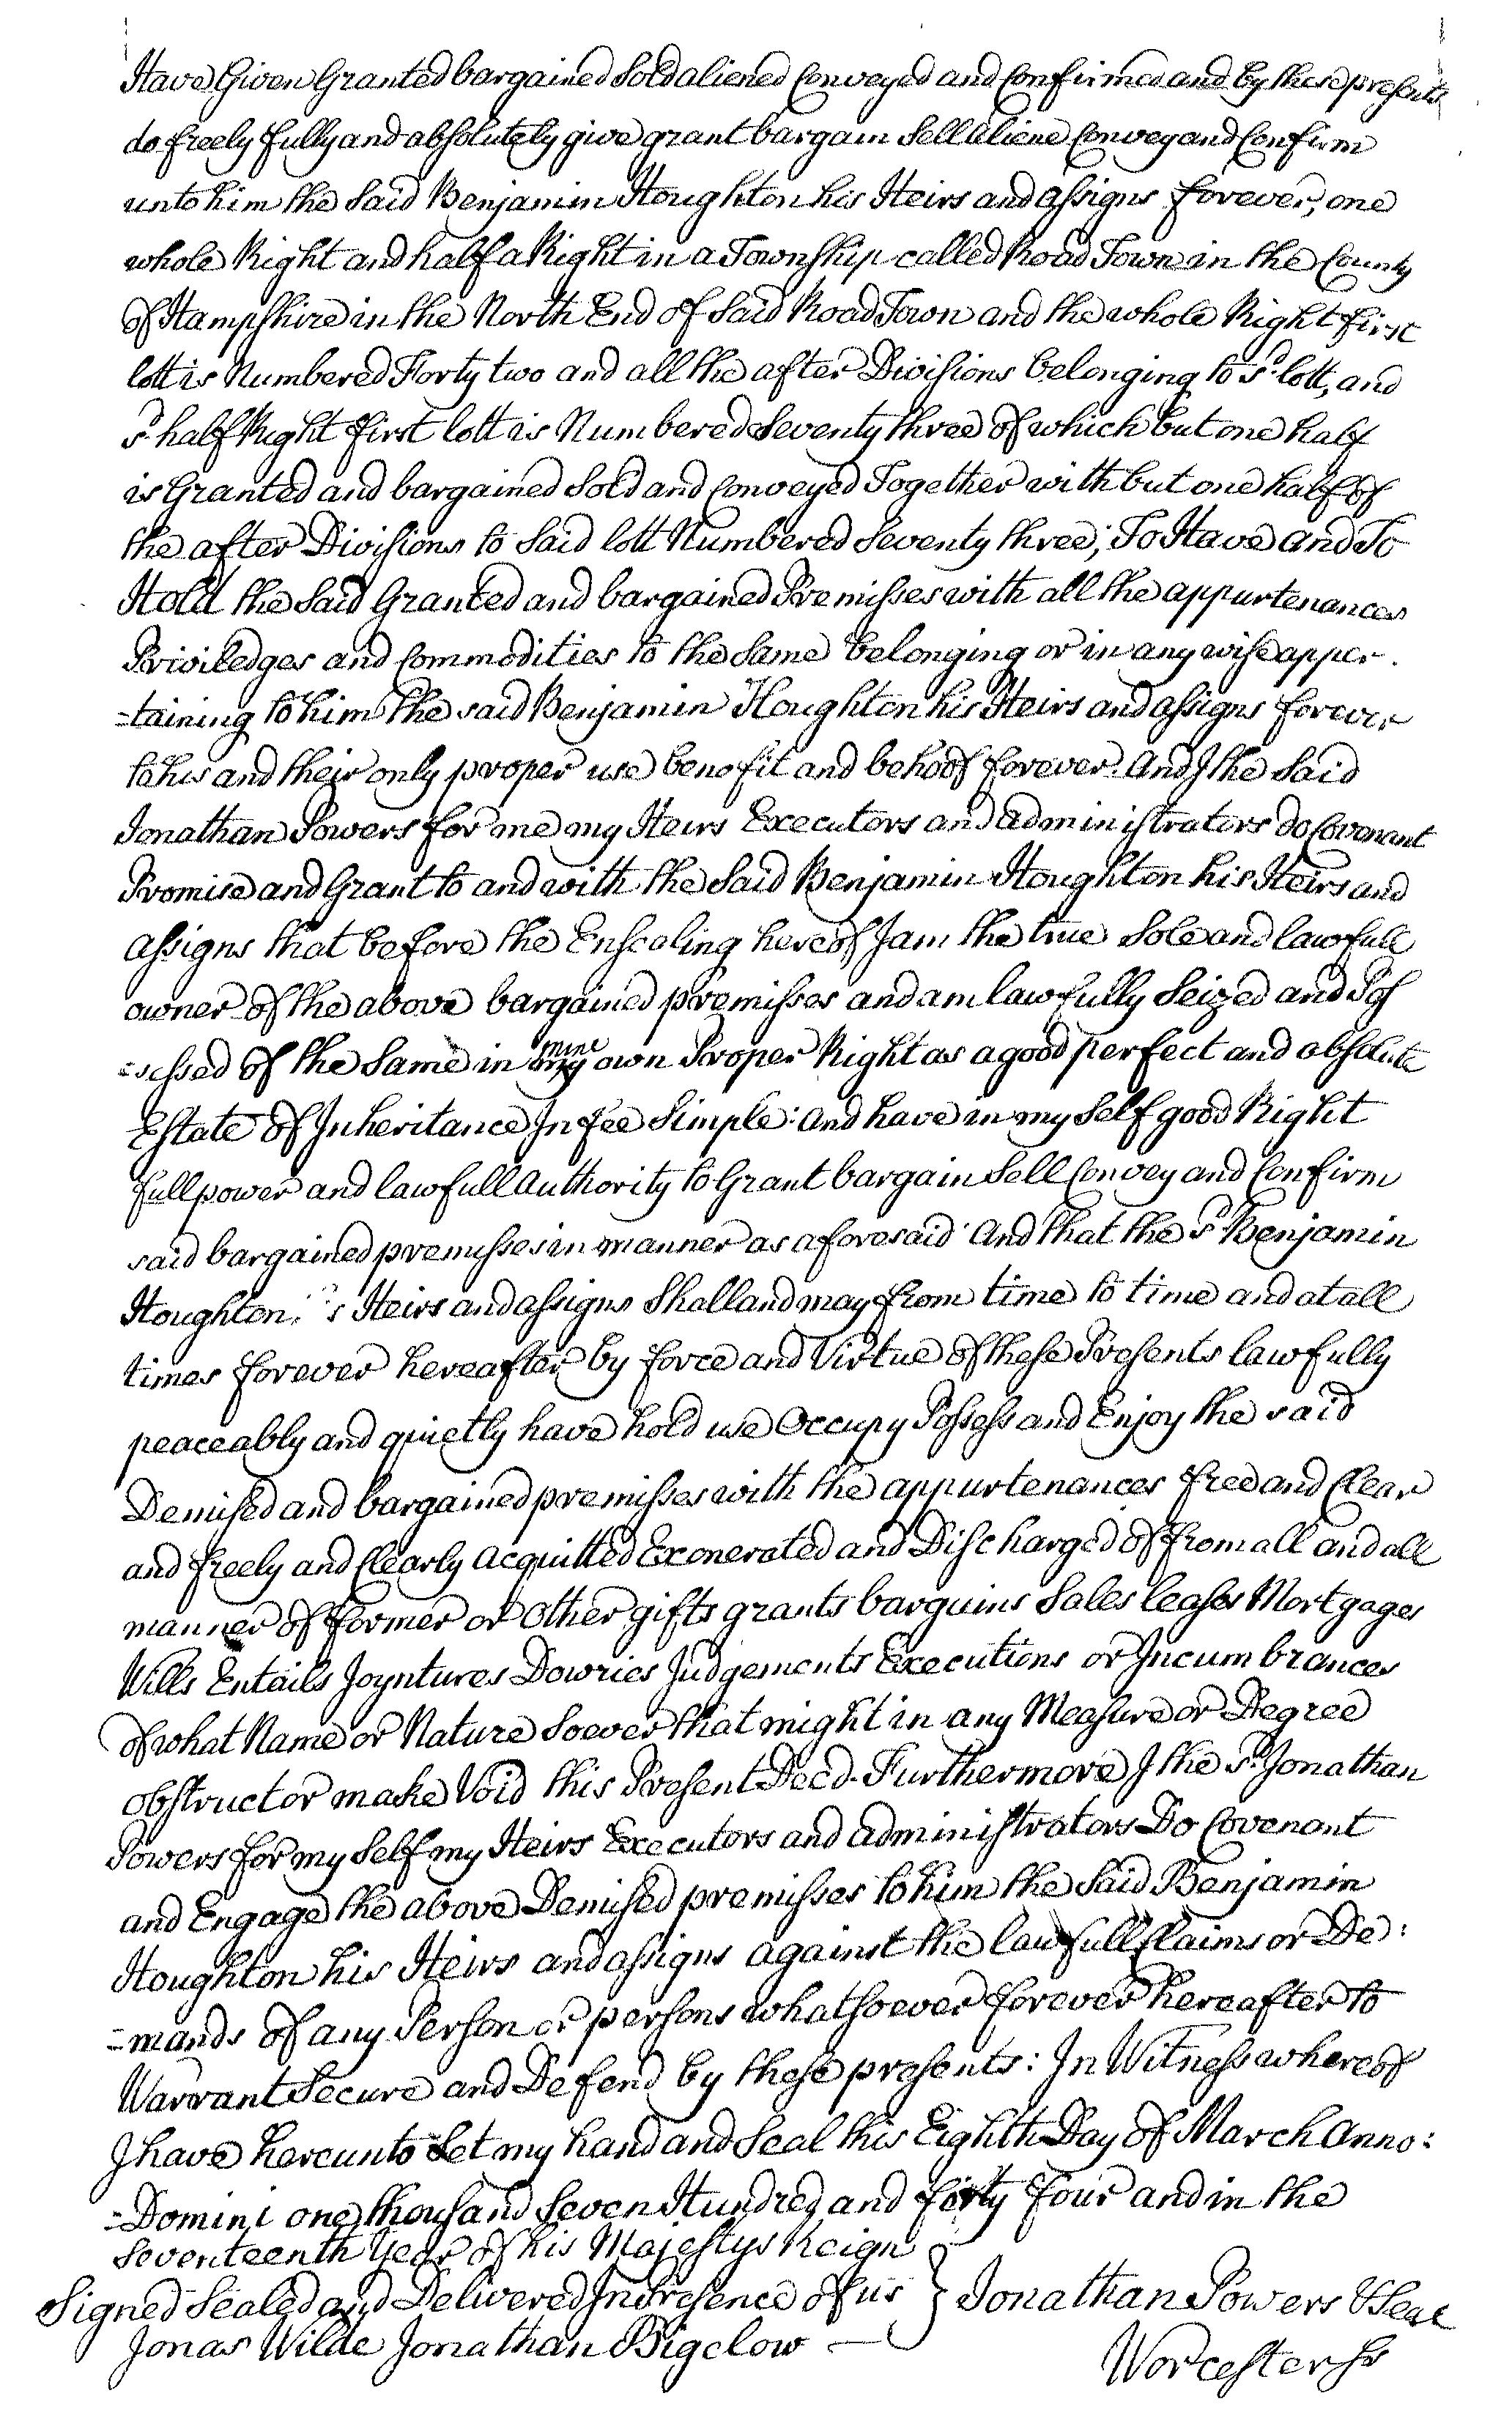 Have Given Granted bargained Sold aliened Conveyed and Confirmed and by these presents
do freely fully and absolutely give grant bargain Sell aliene Convey and Confirm
unto him the Said Benjamin Houghton his Heirs and assigns forever, one
whole Right and half a Right in a Township called Road Town in the County
of Hampshire in the North End of Said Road Town and the whole Right first
lott is Numbered Forty two and all the after Divisions belonging to sd. lott, and
sd. half Right first lott is Numbered Seventy three of which but one half
is Granted and bargained Sold and Conveyed Together with but one half of
the after Divisions to Said lott Numbered Seventy three; To Have and To
Hold the Said Granted and bargained Premisses with all the appurtenances
Priviledges and Commodities to the Same belonging or in any wise apper-
=taining to him the said Benjamin Houghton his Heirs and assigns forever
to his and their only proper use benofit and behoof forever. And I the Said
Jonathan Powers for me my Heirs Executors and administrators do Covenant
Promise and Grant to and with the Said Benjamin Houghton his Heirs and
assigns that before the Ensealing hereof I am the true Sole and lawfull
owner of the above bargained premisses and am lawfully Seized and Pos
=sessed of the Same in mine own Proper Right as a good perfect and absolute
Estate of Inheritance In fee Simple: and have in my Self good Right
full power and lawfull authority to Grant bargain Sell Convey and Confirm
said bargained premisses in manner as aforesaid And that the sd. Benjamin
Houghton Heirs and assigns Shall and may from time to time and at all
times forever hereafter by force and Virtue of these Presents lawfully
peaceably and quietly have hold use Occupy Possess and Enjoy the said
Demised and bargained premisses with the appurtenances free and Clear
and freely and Clearly acquitted Exonerated and Discharged of from all and all
manner of former or other gifts grants bargains Sales leases Mortgages
Wills Entails Joyntures Dowries Judgements Executions or Incumbrances
of what Name or Nature Soever that might in any Measure or Degree
obstruct or make Void this Present Deed. Furthermore I the sd. Jonathan
Powers for my Self my Heirs Executors and administrators Do Covenant
and Engage the above Demised premisses to him the Said Benjamin
Houghton his Heirs and assigns against the lawfull Claims or De:
=mands of any Person or persons whatsoever forever hereafter to
Warrant Secure and Defend by these presents: In Witness whereof
I have hereunto Set my hand and Seal this Eighth Day of March Anno:
=Domini one thousand Seven Hundred and forty four and in the
Seventeenth Year of his Majestys Reign
Signed Sealed and Delivered In Presence of us } Jonathan Powers & Seal
Jonas Wilde Jonathan Bigelow —
Worcester Ss